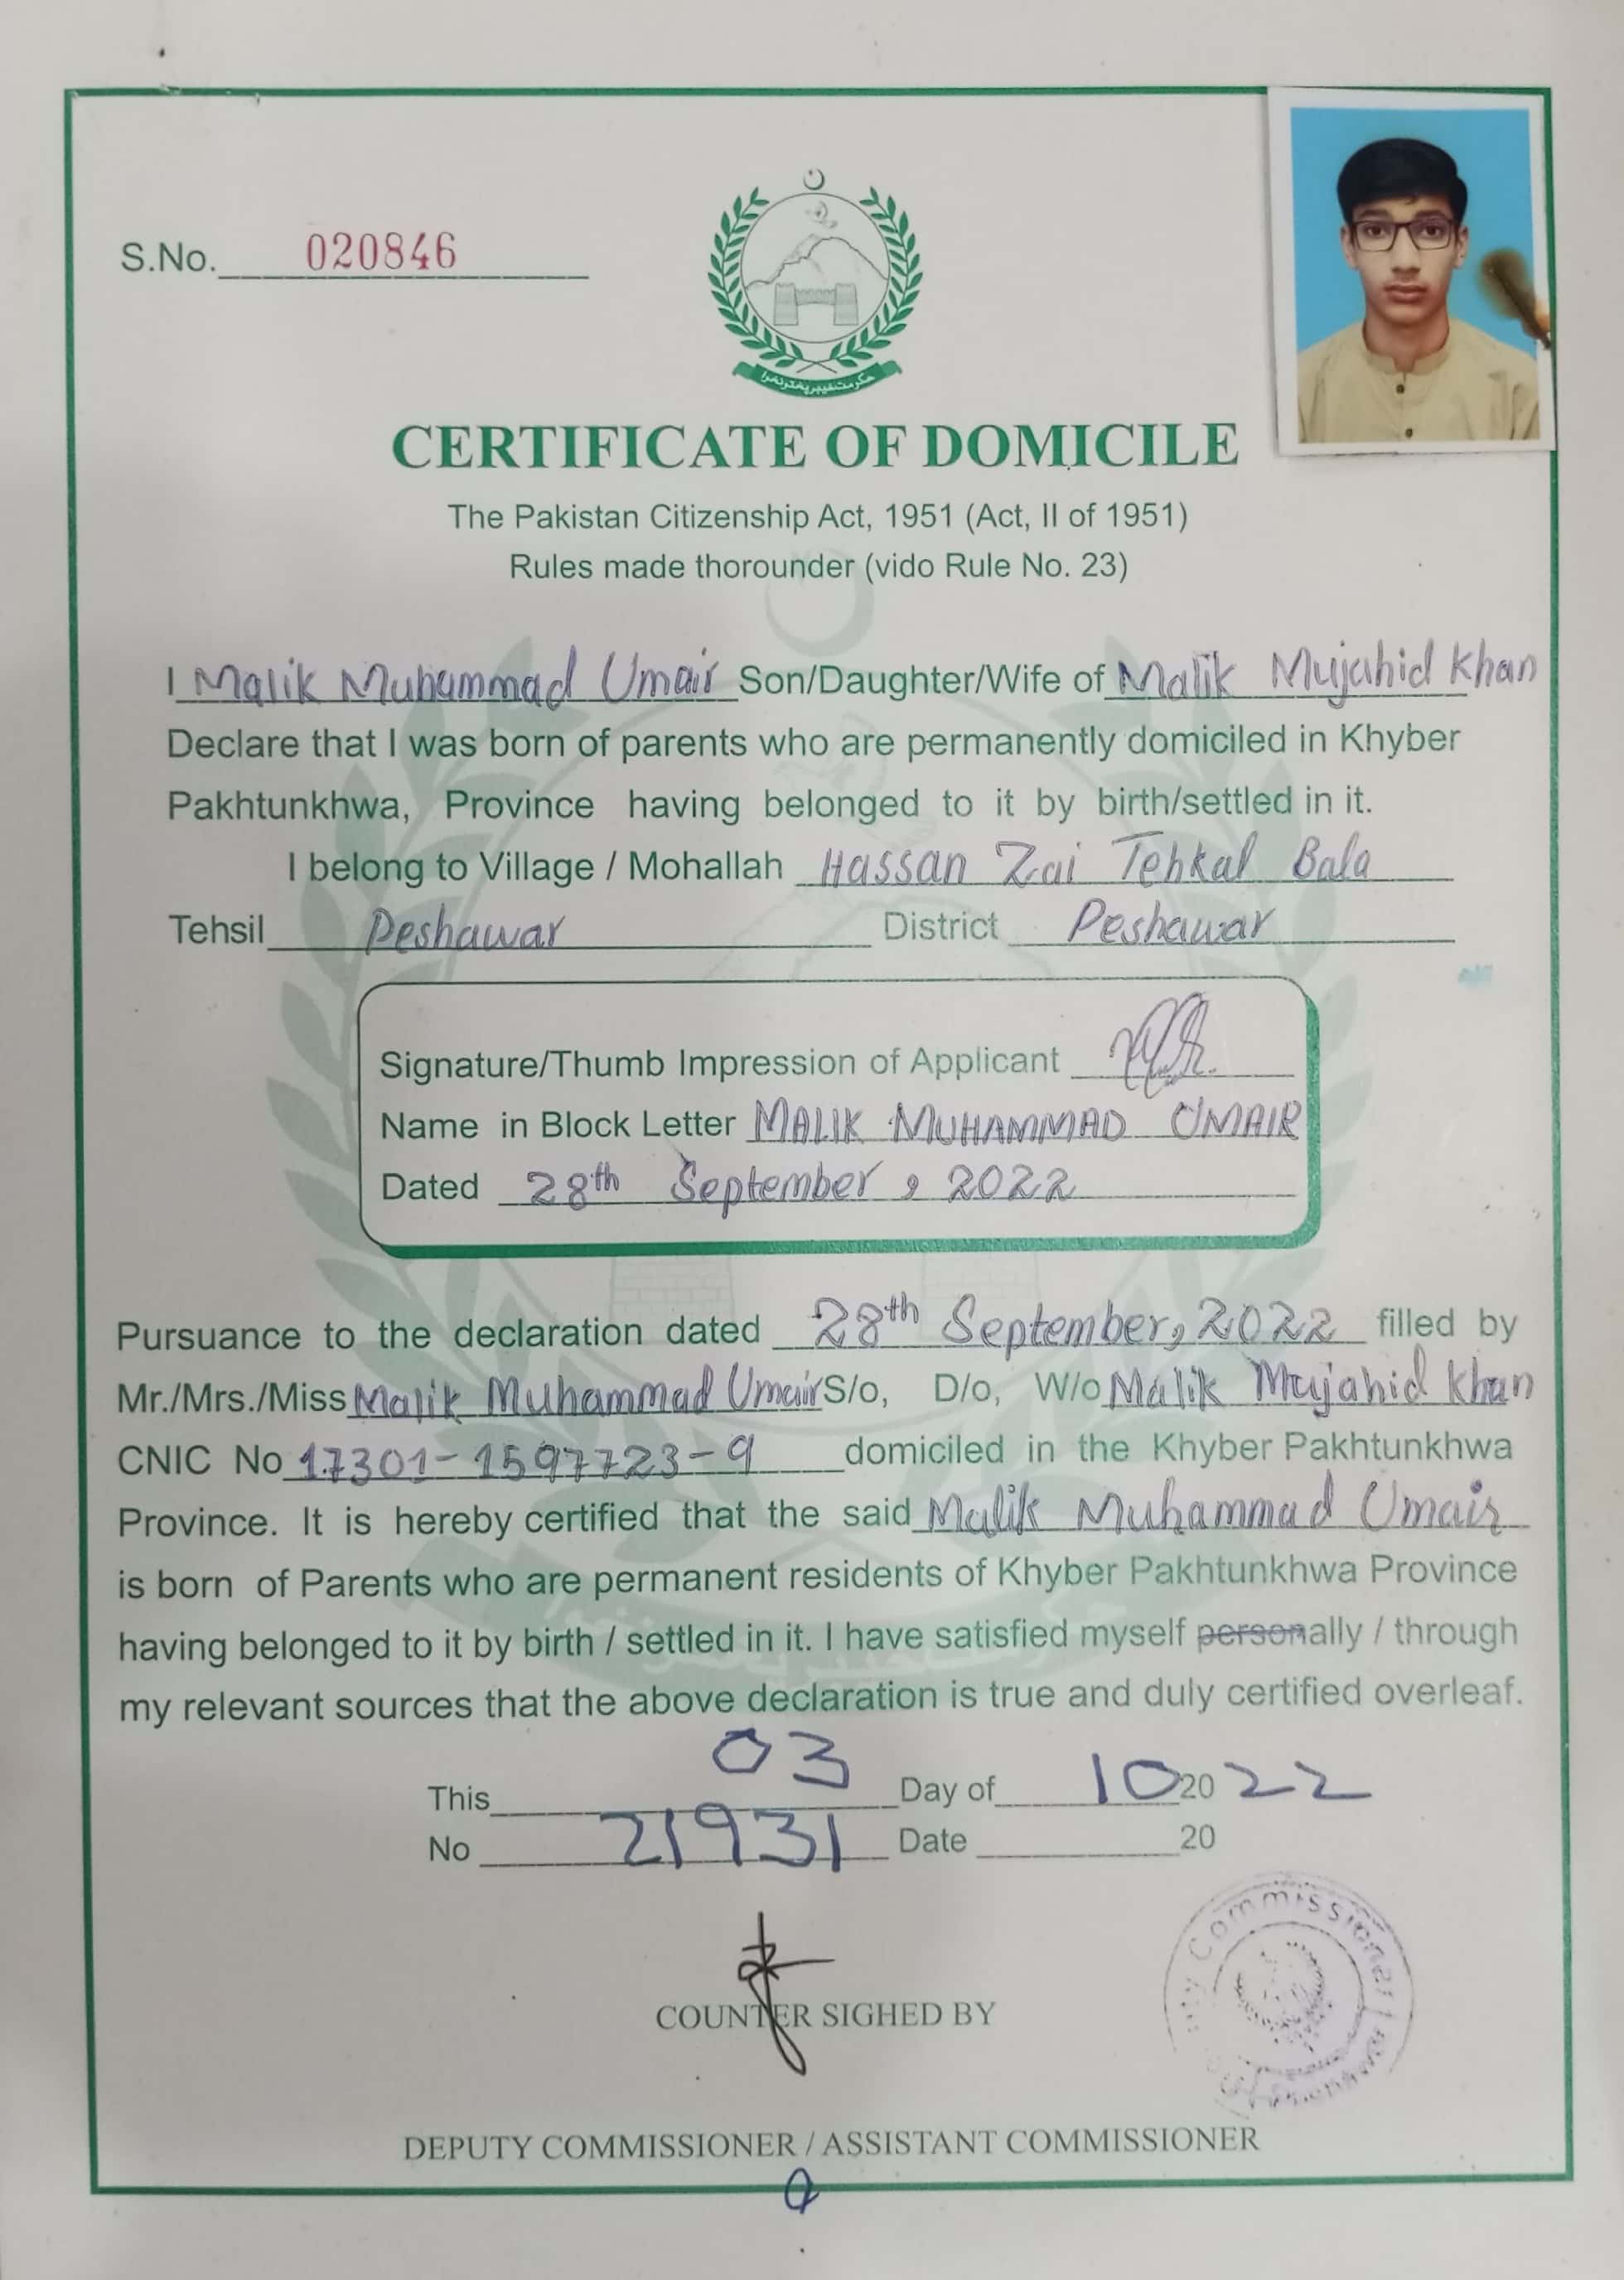 S.No. 020846
حکومت خیبر پختونخوا
CERTIFICATE OF DOMICILE
The Pakistan Citizenship Act, 1951 (Act, II of 1951)
Rules made thorounder (vido Rule No. 23)
I Malik Muhammad Umair Son/Daughter/Wife of Malik Mujahid Khan
Declare that I was born of parents who are permanently domiciled in Khyber
Pakhtunkhwa, Province having belonged to it by birth/settled in it.
I belong to Village / Mohallah Hassan Zai Tehkal Bala
Tehsil Peshawar District Peshawar
Signature/Thumb Impression of Applicant
Name in Block Letter MALIK MUHAMMAD UMAIR
Dated 28th September, 2022
Pursuance to the declaration dated 28th September, 2022 filled by
Mr./Mrs./Miss Malik Muhammad Umair S/o, D/o, W/o Malik Mujahid Khan
CNIC No 17301-1597723-9 domiciled in the Khyber Pakhtunkhwa
Province. It is hereby certified that the said Malik Muhammad Umair
is born of Parents who are permanent residents of Khyber Pakhtunkhwa Province
having belonged to it by birth / settled in it. I have satisfied myself personally / through
my relevant sources that the above declaration is true and duly certified overleaf.
This 03 Day of 10 2022
No 21931 Date 20
COUNTER SIGHED BY
Commissioner
DEPUTY COMMISSIONER / ASSISTANT COMMISSIONER